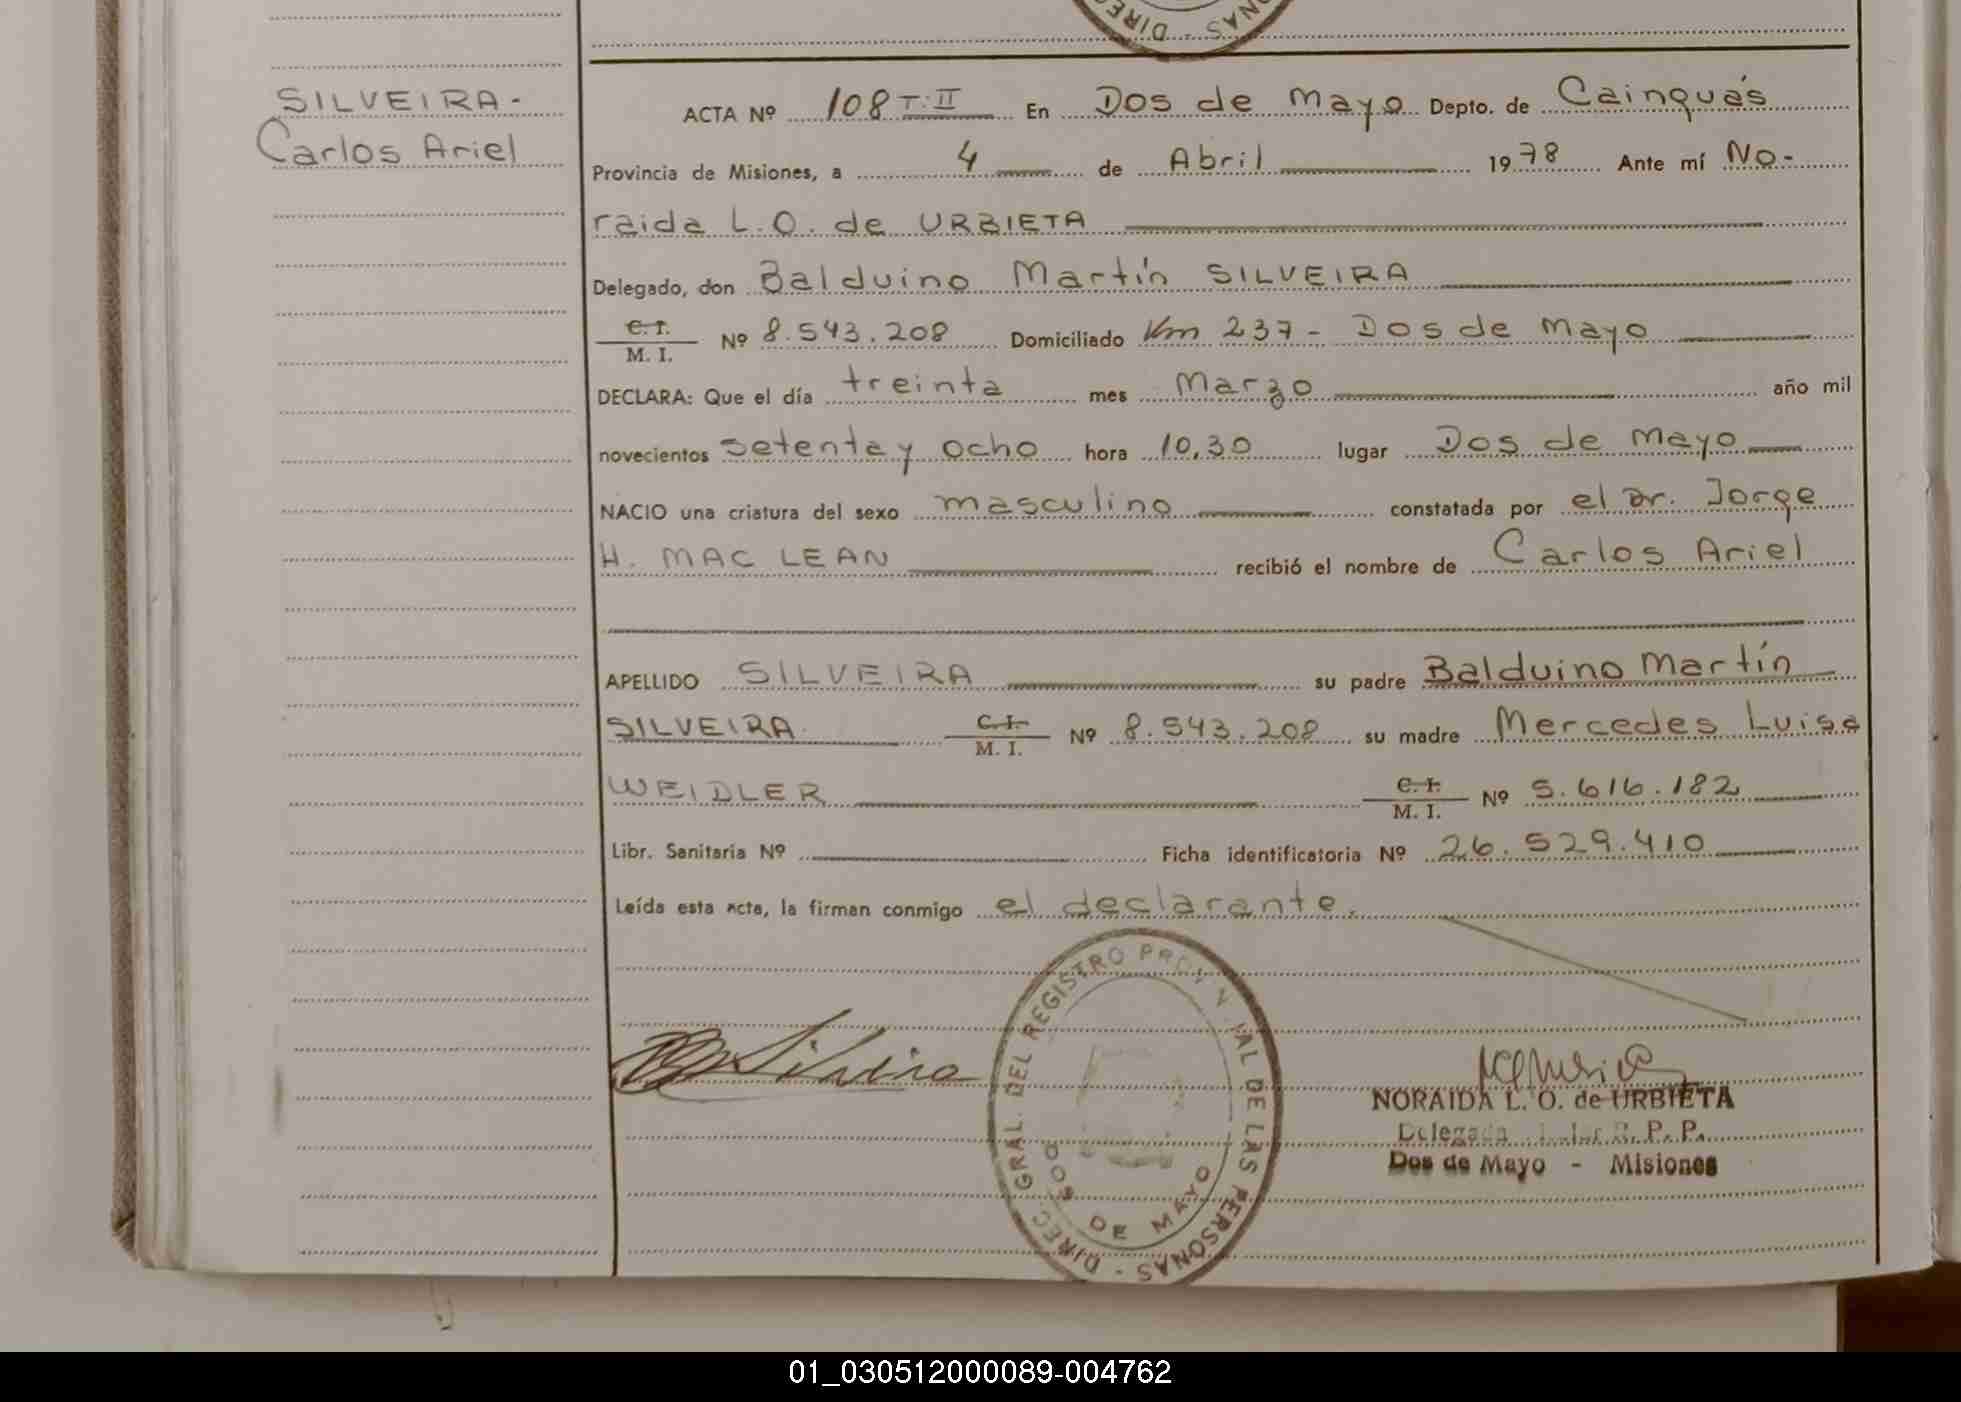 DIREC NAS -
SILVEIRA-
Carlos Ariel
ACTA Nº 108 T: II En Dos de Mayo Depto. de Cainguás
Provincia de Misiones, a 4 de Abril 1978 Ante mí No-
raida L.O. de URBIETA
Delegado, don Balduino Martín SILVEIRA
C.I. M. I. Nº 8.543.208 Domiciliado Km 237- Dos de Mayo
DECLARA: Que el día treinta mes Marzo año mil
novecientos setenta y ocho hora 10,30 lugar Dos de Mayo
NACIO una criatura del sexo masculino constatada por el Dr. Jorge
H. MAC LEAN recibió el nombre de Carlos Ariel
APELLIDO SILVEIRA su padre Balduino Martín
SILVEIRA C.I. M. I. Nº 8.543.208 su madre Mercedes Luisa
WEIDLER C.I. M. I. Nº 5.616.182
Libr. Sanitaria Nº Ficha identificatoria Nº 26.529.410
Leída esta acta, la firman conmigo el declarante.
DIREC. GRAL. DEL REGISTRO PROV DE LAS PERSONAS -
DOS DE MAYO
Silveira
NORAIDA L. O. de URBIETA
Delegada R. P. P.
Dos de Mayo - Misiones
01_030512000089-004762